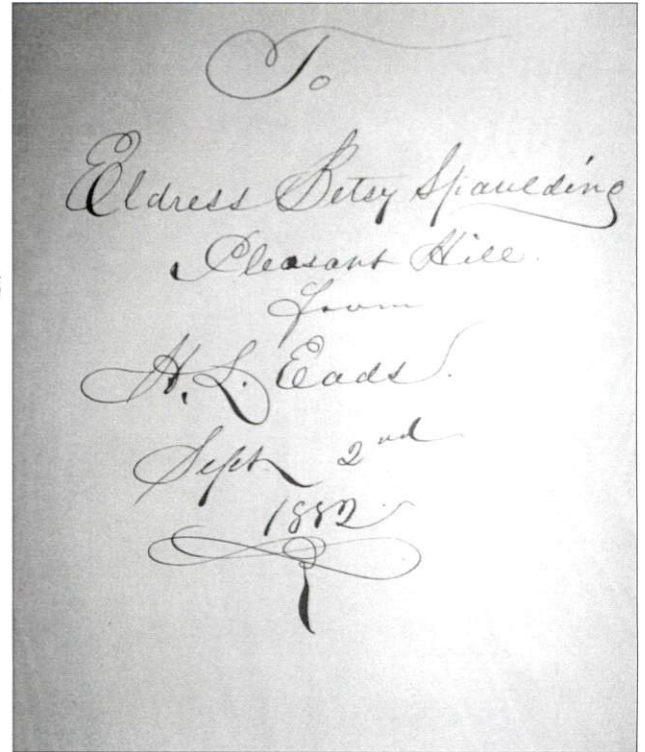 To
Eldress Betsy Spaulding
Pleasant Hill.
from
H. L. Eads.
Sept 2nd
1882